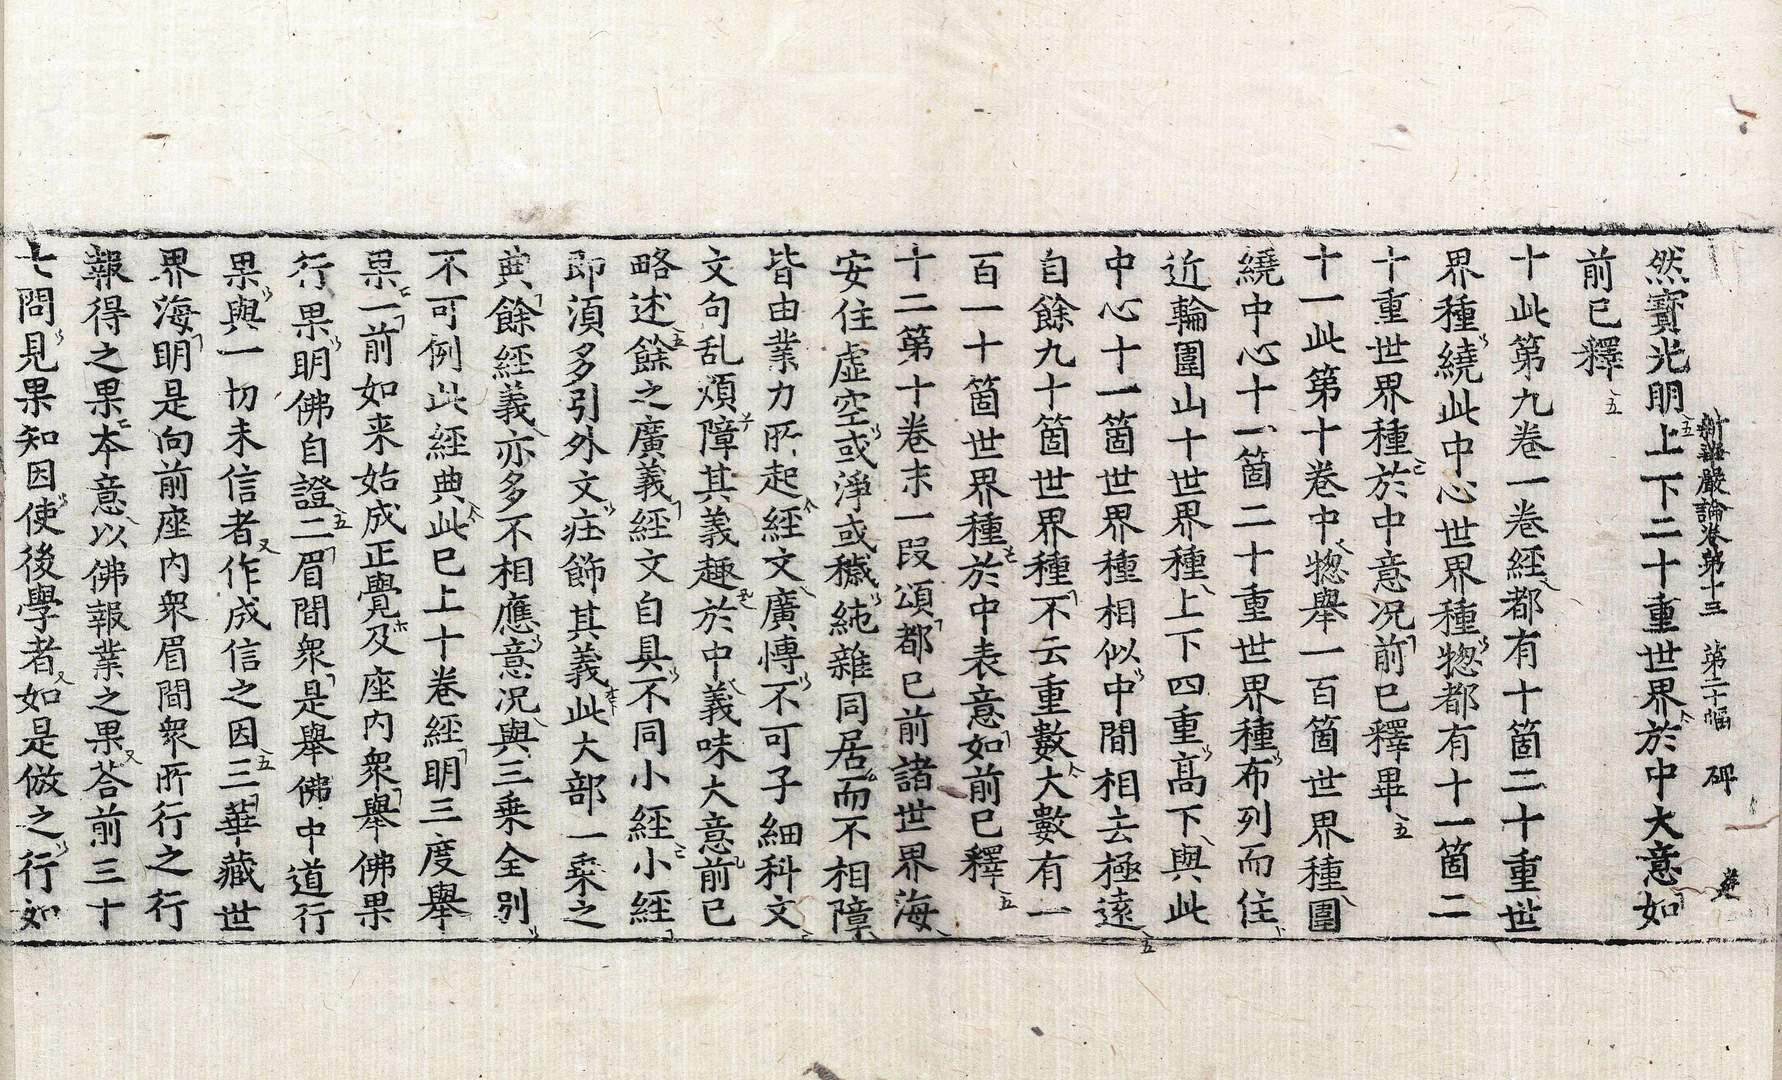 然寶光明上下二十重世界於中大意如
新華嚴論卷第十三 第二十幅 碑
前已釋
十此第九卷一卷經都有十箇二十重世
界種繞此中心世界種惣都有十一箇二
十重世界種於中意况前已釋畢
十一此第十卷中惣舉一百箇世界種圍
繞中心十一箇二十重世界種布列而住
近輪圍山十世界種上下四重高下與此
中心十一箇世界種相似中間相去極遠
自餘九十箇世界種不云重數大數有一
百一十箇世界種於中表意如前已釋
十二第十卷末一段頌都已前諸世界海
安住虛空或淨或穢純雜同居而不相障
皆由業力所起經文廣愽不可子細科文
文句乱煩障其義趣於中義味大意前已
略述餘之廣義經文自具不同小經小經
即須多引外文庄飾其義此大部一乘之
典餘經義亦多不相應意况與三乘全別
不可例此經典此已上十卷經明三度舉
果一前如来始成正覺及座內衆舉佛果
行果明佛自證二眉間衆是舉佛中道行
果與一切未信者作成信之因三華藏世
界海明是向前座內衆眉間衆所行之行
報得之果本意以佛報業之果荅前三十
七問見果知因使後學者如是倣之行如